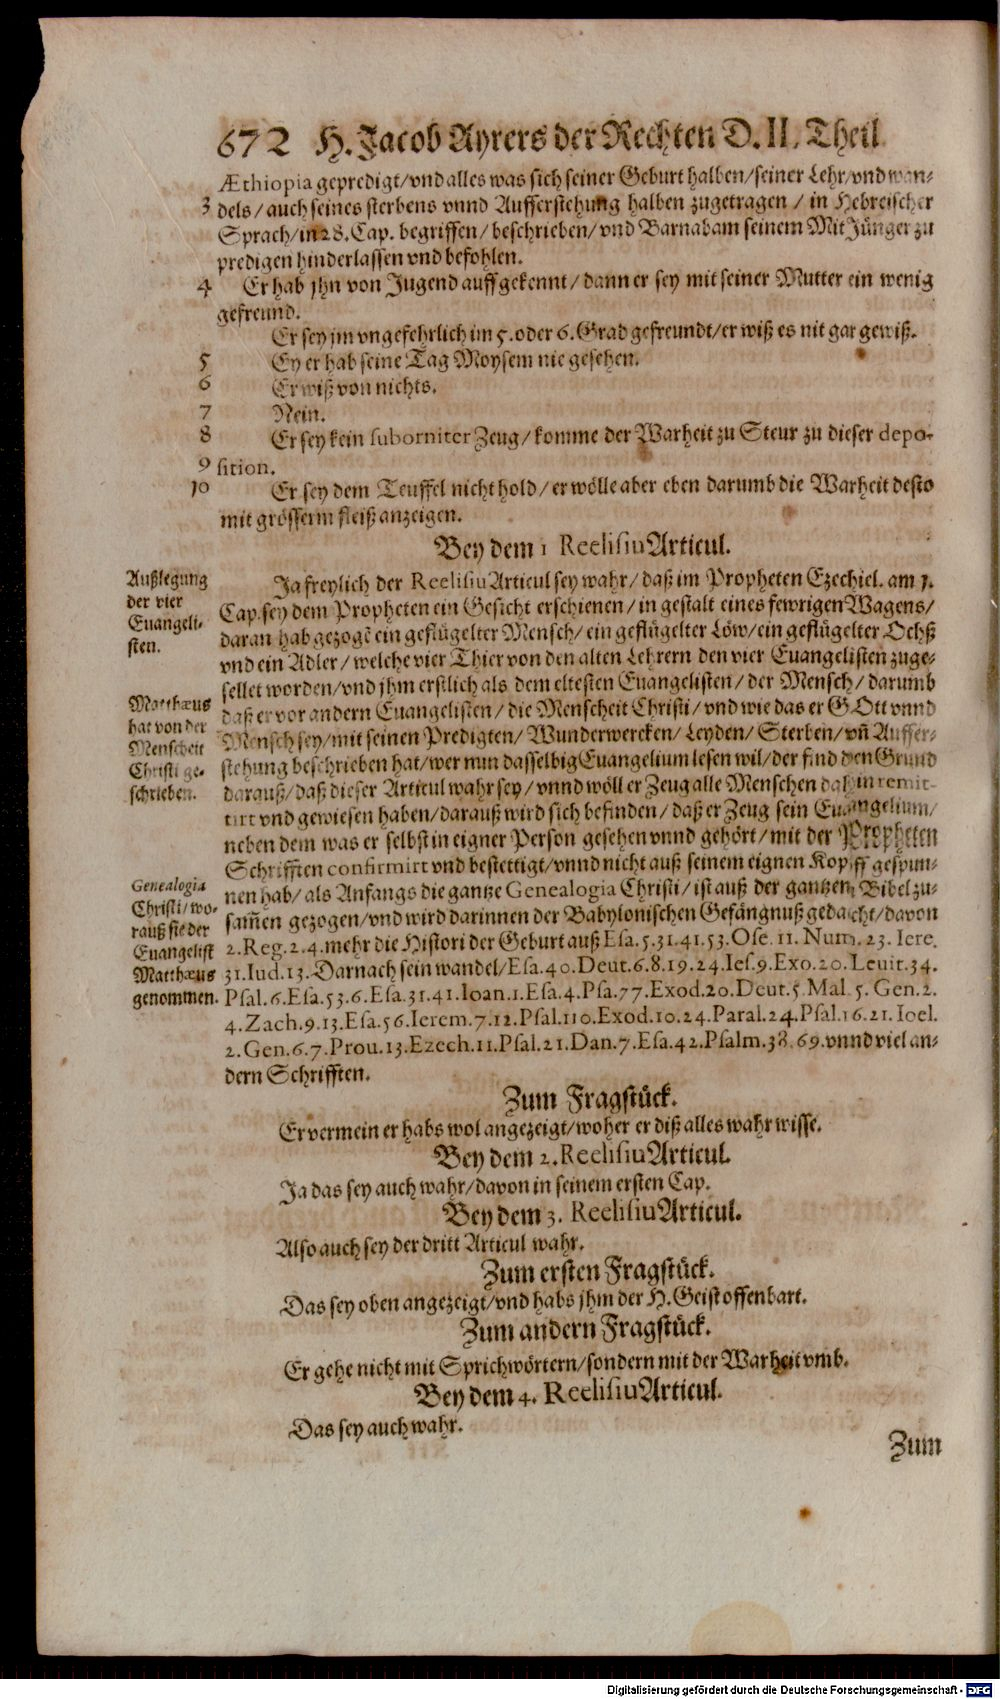 672 H. Jacob Ayrers der Rechten D. II. Theil
Æthiopia gepredigt/vnd alles was sich seiner Geburt halben/seiner Lehr/vnd wan-
3 dels/auch seines sterbens vnnd Aufferstehung halben zugetragen/in Hebreischer
Sprach/in 28. Cap. begriffen/beschrieben/vnd Barnabam seinem Mit Jünger zu
predigen hinderlassen vnd befohlen.
4 Er hab jhn von Jugend auff gekennt/dann er sey mit seiner Mutter ein wenig
gefreund.
Er sey jm vngefehrlich im 5. oder 6. Grad gefreundt/er wiß es nit gar gewiß.
5 Ey er hab seine Tag Moysem nie gesehen.
6 Er wiß von nichts.
7 Nein.
8 Er sey kein suborniter Zeug/komme der Warheit zu Steur zu dieser depo-
9 sition.
10 Er sey dem Teuffel nicht hold/er wölle aber eben darumb die Warheit desto
mit grösserm fleiß anzeigen.
Bey dem 1 Reelisiu Articul.
Außlegung
der vier
Euangeli-
sten.
Ja freylich der Reelisiu Articul sey wahr/daß im Propheten Ezechiel. am 1.
Cap. sey dem Propheten ein Gesicht erschienen/in gestalt eines fewrigen Wagens/
daran hab gezogẽ ein geflügelter Mensch/ein geflügelter Löw/ein geflügelter Ochß
vnd ein Adler/welche vier Thier von den alten Lehrern den vier Euangelisten zuge-
sellet worden/vnd jhm erstlich als dem eltesten Euangelisten/der Mensch/darumb
Matthæus
hat von der
Menscheit
Christi ge-
schrieben.
daß er vor andern Euangelisten/die Menscheit Christi/vnd wie das er GOtt vnnd
Mensch sey/mit seinen Predigten/Wunderwercken/Leyden/Sterben/vñ Auffer-
stehung beschrieben hat/wer nun dasselbig Euangelium lesen wil/der find den Grund
darauß/daß dieser Articul wahr sey/vnnd wöll er Zeug alle Menschen dahin remit-
tirt vnd gewiesen haben/darauß wird sich befinden/daß er Zeug sein Euangelium/
neben dem was er selbst in eigner Person gesehen vnnd gehört/mit der Propheten
Schrifften confirmirt vnd bestettigt/vnnd nicht auß seinem eignen Kopff gespun-
Genealogia
Christi/wo-
rauß sie der
Euangelist
Matthæus
genommen.
nen hab/als Anfangs die gantze Genealogia Christi/ist auß der gantzen Bibel zu-
sam̃en gezogen/vnd wird darinnen der Babylonischen Gefängnuß gedacht/davon
2. Reg. 2. 4. mehr die Histori der Geburt auß Esa. 5. 31. 41. 53. Ose. 11. Num. 23. Iere.
31. Iud. 13. Darnach sein wandel/Esa. 40. Deut. 6. 8. 19. 24. Ies. 9. Exo. 20. Leuit. 34.
Psal. 6. Esa. 53. 6. Esa. 31. 41. Ioan. 1. Esa. 4. Psa. 77. Exod. 20. Deut. 5. Mal. 5. Gen. 2.
4. Zach. 9. 13. Esa. 56. Ierem. 7. 12. Psal. 110. Exod. 10. 24. Paral. 24. Psal. 16. 21. Ioel.
2. Gen. 6. 7. Prou. 13. Ezech. 11. Psal. 21. Dan. 7. Esa. 42. Psalm. 38. 69. vnnd viel an-
dern Schrifften.
Zum Fragstück.
Er vermein er habs wol angezeigt/woher er diß alles wahr wisse.
Bey dem 2. Reelisiu Articul.
Ja das sey auch wahr/davon in seinem ersten Cap.
Bey dem 3. Reelisiu Articul.
Also auch sey der dritt Articul wahr.
Zum ersten Fragstück.
Das sey oben angezeigt/vnd habs jhm der H. Geist offenbart.
Zum andern Fragstück.
Er gehe nicht mit Sprichwörtern/sondern mit der Warheit vmb.
Bey dem 4. Reelisiu Articul.
Das sey auch wahr.
Zum
Digitalisierung gefördert durch die Deutsche Forschungsgemeinschaft - DFG